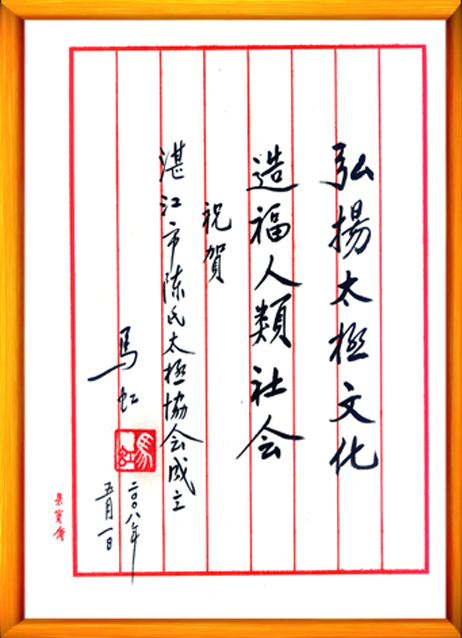 弘揚太極文化
造福人類社会
祝賀
湛江市陈氏太極協会成立
馬虹
馬虹
二〇〇八年
五月一日
荣寳斋